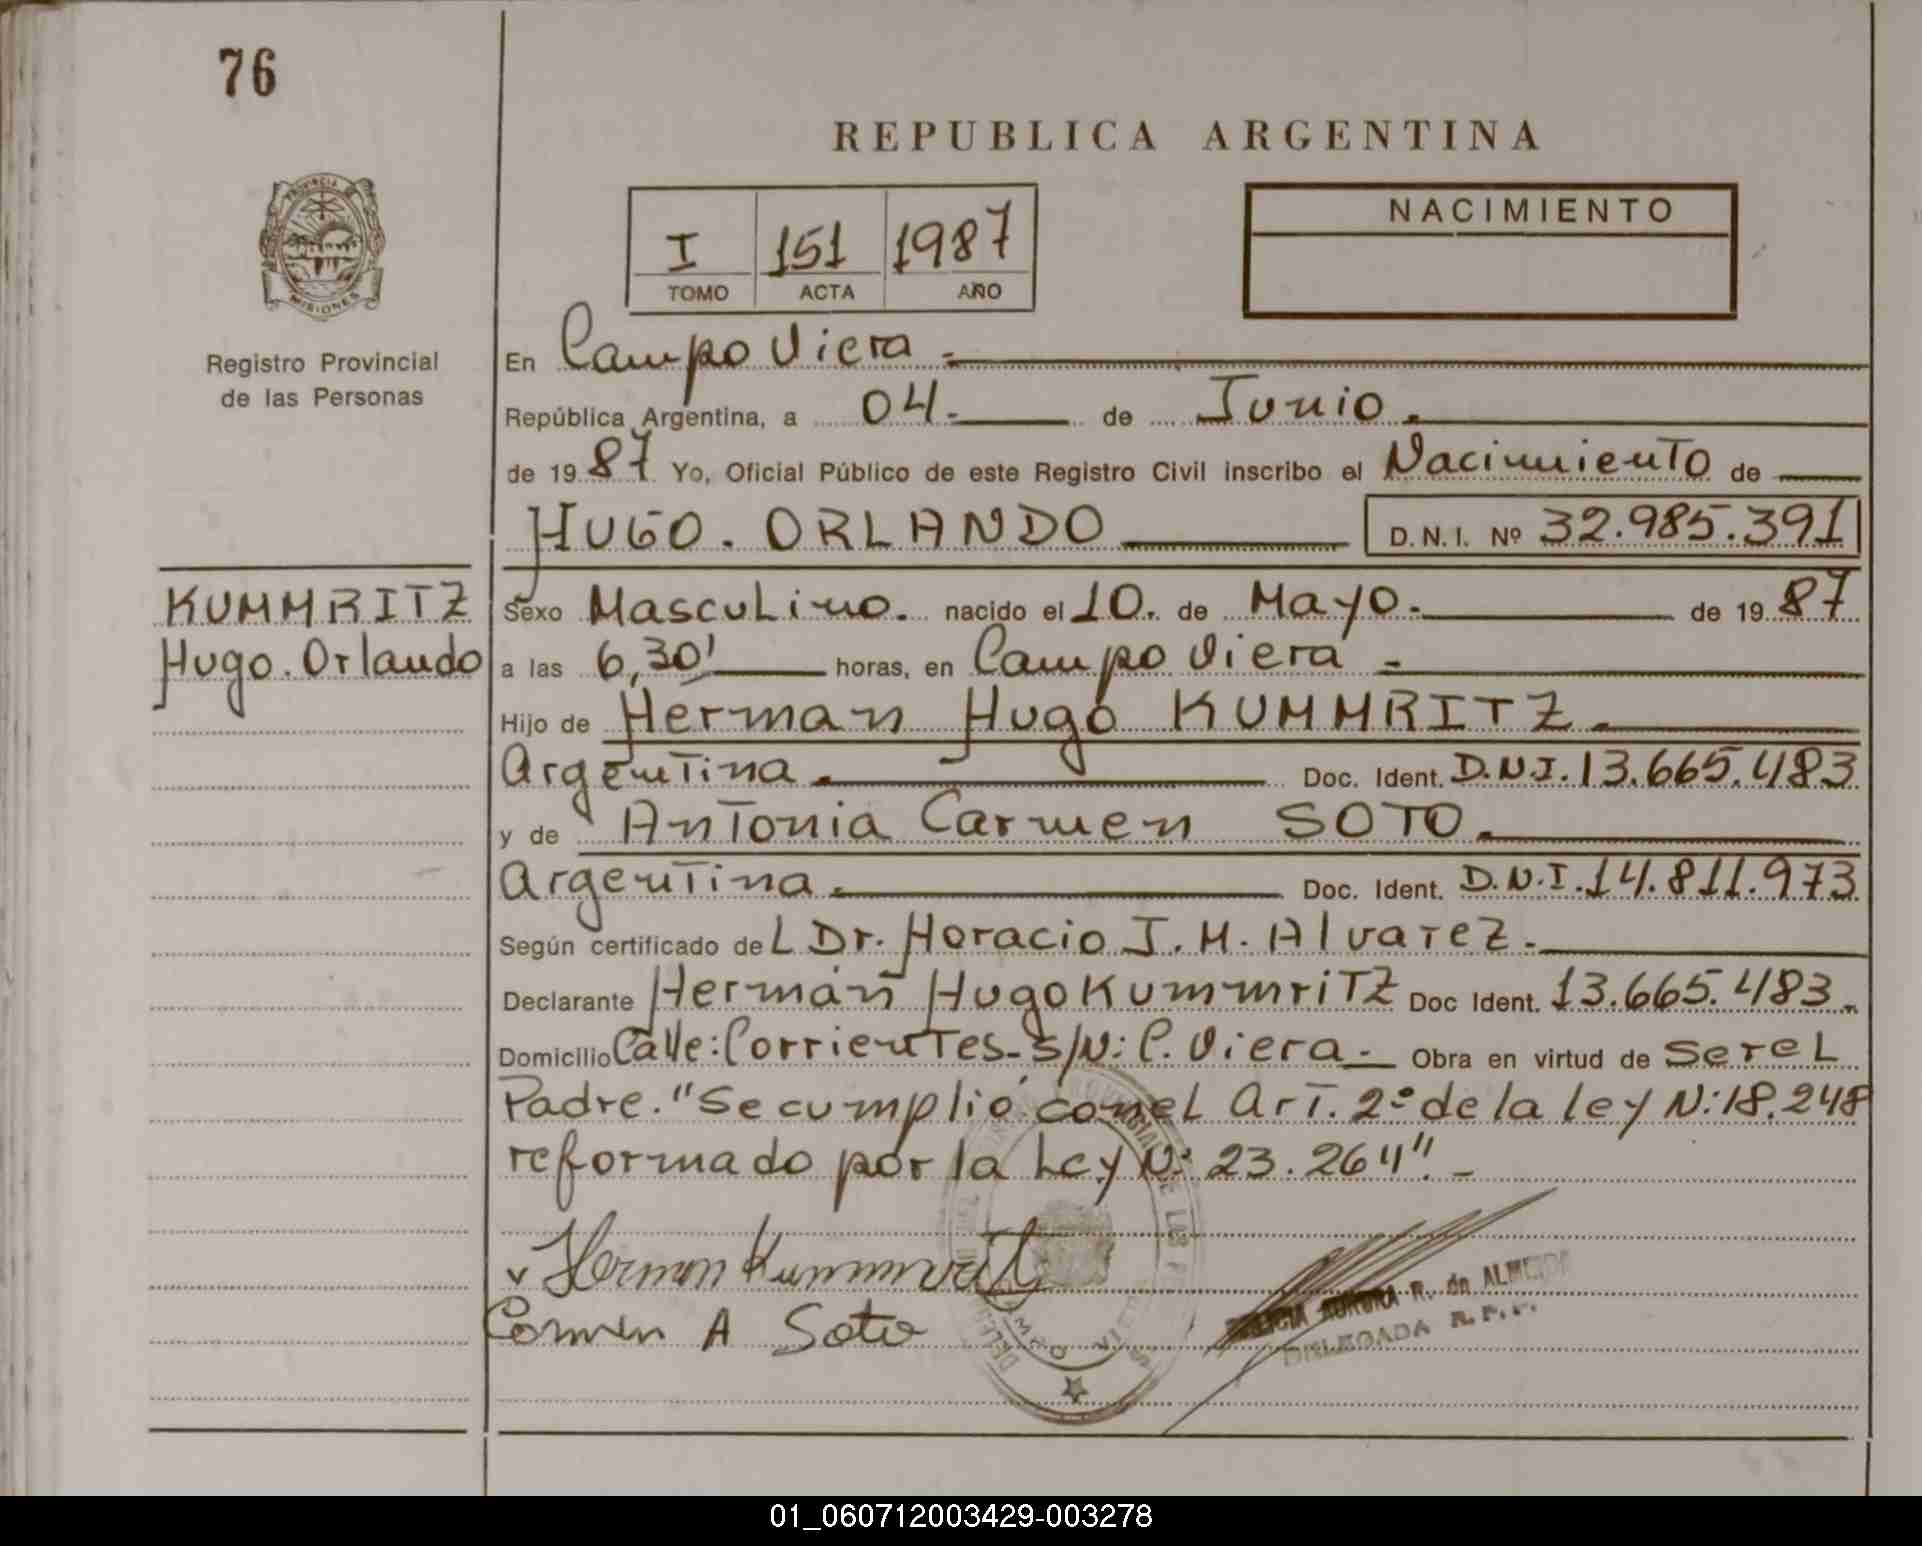 76
REPUBLICA ARGENTINA
PROVINCIA DE
MISIONES
Registro Provincial
de las Personas
I 151 1987
TOMO ACTA AÑO
NACIMIENTO
En Campo Viera.-
República Argentina, a 04.- de Junio.
de 1987 Yo, Oficial Público de este Registro Civil inscribo el Nacimiento de
HUGO. ORLANDO D.N.I. Nº 32.985.391
KUMMRITZ
Hugo. Orlando
Sexo Masculino. nacido el 10. de Mayo.- de 1987
a las 6,30' horas, en Campo Viera.-
Hijo de Herman Hugo KUMMRITZ.
Argentina. Doc. Ident. D.N.I. 13.665.483
y de Antonia Carmen SOTO.
Argentina. Doc. Ident. D.N.I. 14.811.973
Según certificado del Dr. Horacio J. M. Alvarez.
Declarante Hermán Hugo Kummritz Doc Ident. 13.665.483.
Domicilio Calle: Corrientes- S/N: C. Viera.- Obra en virtud de ser el
Padre. "Se cumplió con el Art. 2º de la ley N: 18.248
reformado por la Ley N: 23.264".-
Herman Kummritz
Carmen A Soto
AURORA R. de ALMEIDA
DELEGADA R.P.P.
01_060712003429-003278